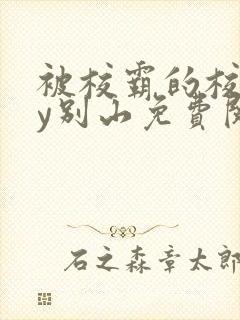 被校霸的校
y别山免費閱
石之森章太郎